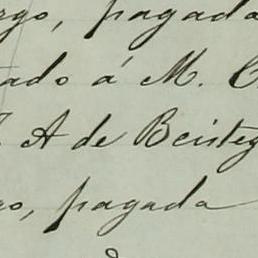 rgo, pagada
tado á M. C
A de Beisteg
go, pagada